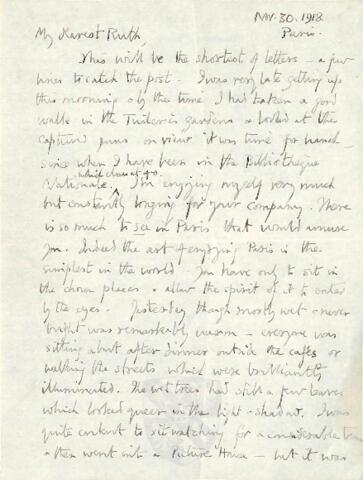 Nov. 30. 1918.
Paris.
My dearest Ruth,
This will be the shortest of letters – a few
lines to catch the post. I was very late getting up
this morning & by the time I had taken a good
walk in the Tuileries gardens & looked at the
captured guns on view it was time for lunch –
since when I have been in the Bibliotheque
Nationale, which closes at 4.0. I'm enjoying myself very much
but constantly longing for your company. There
is so much to see in Paris that would amuse
you. Indeed the art of enjoying Paris is the
simplest in the world – you have only to sit in
the chosen places & allow the spirit of it to enter
by the eyes. Yesterday though mostly wet & never
bright was remarkably warm – everyone was
sitting about after dinner outside the cafés or
walking the streets which were brilliantly
illuminated. The wet trees had still a few leaves
which looked queer in the light & shadow. I was
quite content to sit watching for a considerable time
& then went into a Picture House – but it was